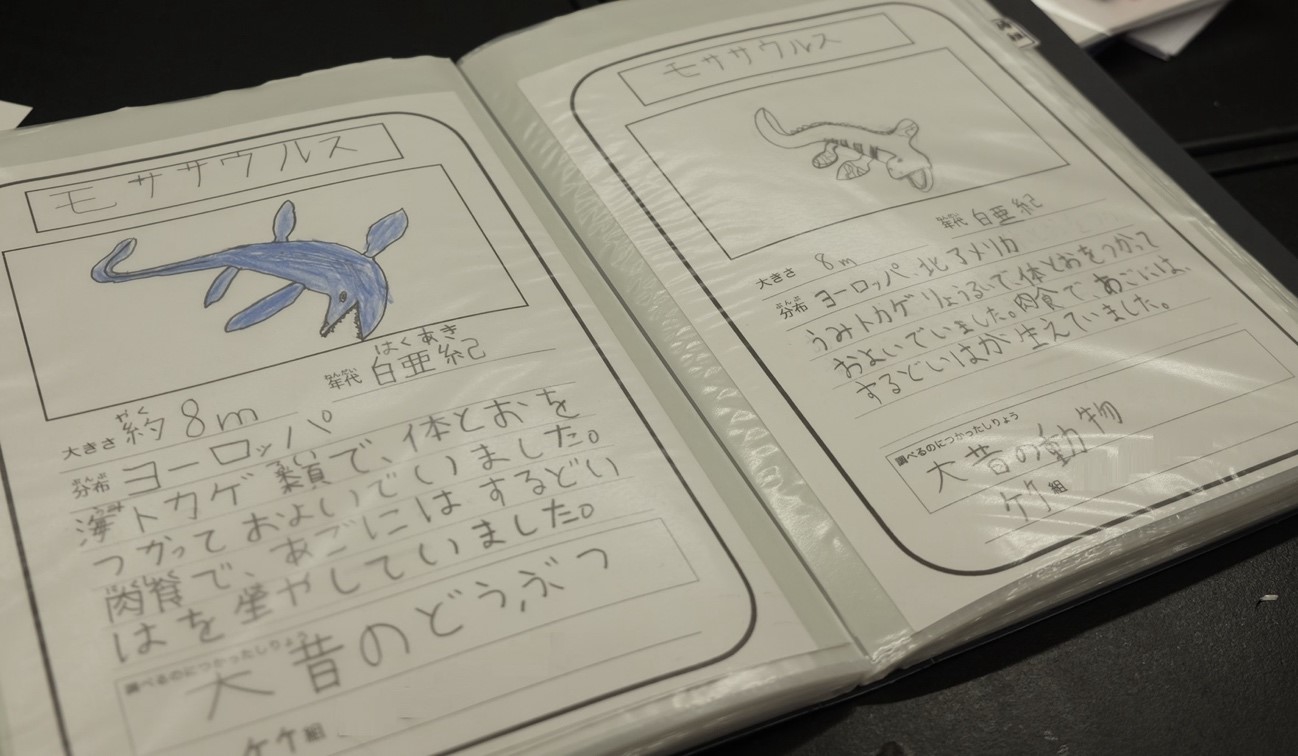 モササウルス
はくあき
年代 白亜紀
やく
大きさ 約8m
ぶんぷ
分布 ヨーロッパ
うみ るい
海トカゲ類で、体とおを
つかっておよいでいました。
にくしょく
肉食で、あごにはするどい
はを生やしていました。
調べるのにつかったしりょう
大昔のどうぶつ
ケケ組
モササウルス
年代 白亜紀
大きさ 8m
ぶんぷ
分布 ヨーロッパ、北アメリカ
うみトカゲりょうるいで、体とおをつかって
およいでいました。肉食で、あごには、
するどいはが生えていました。
調べるのにつかったしりょう
大昔の動物
ケケ組